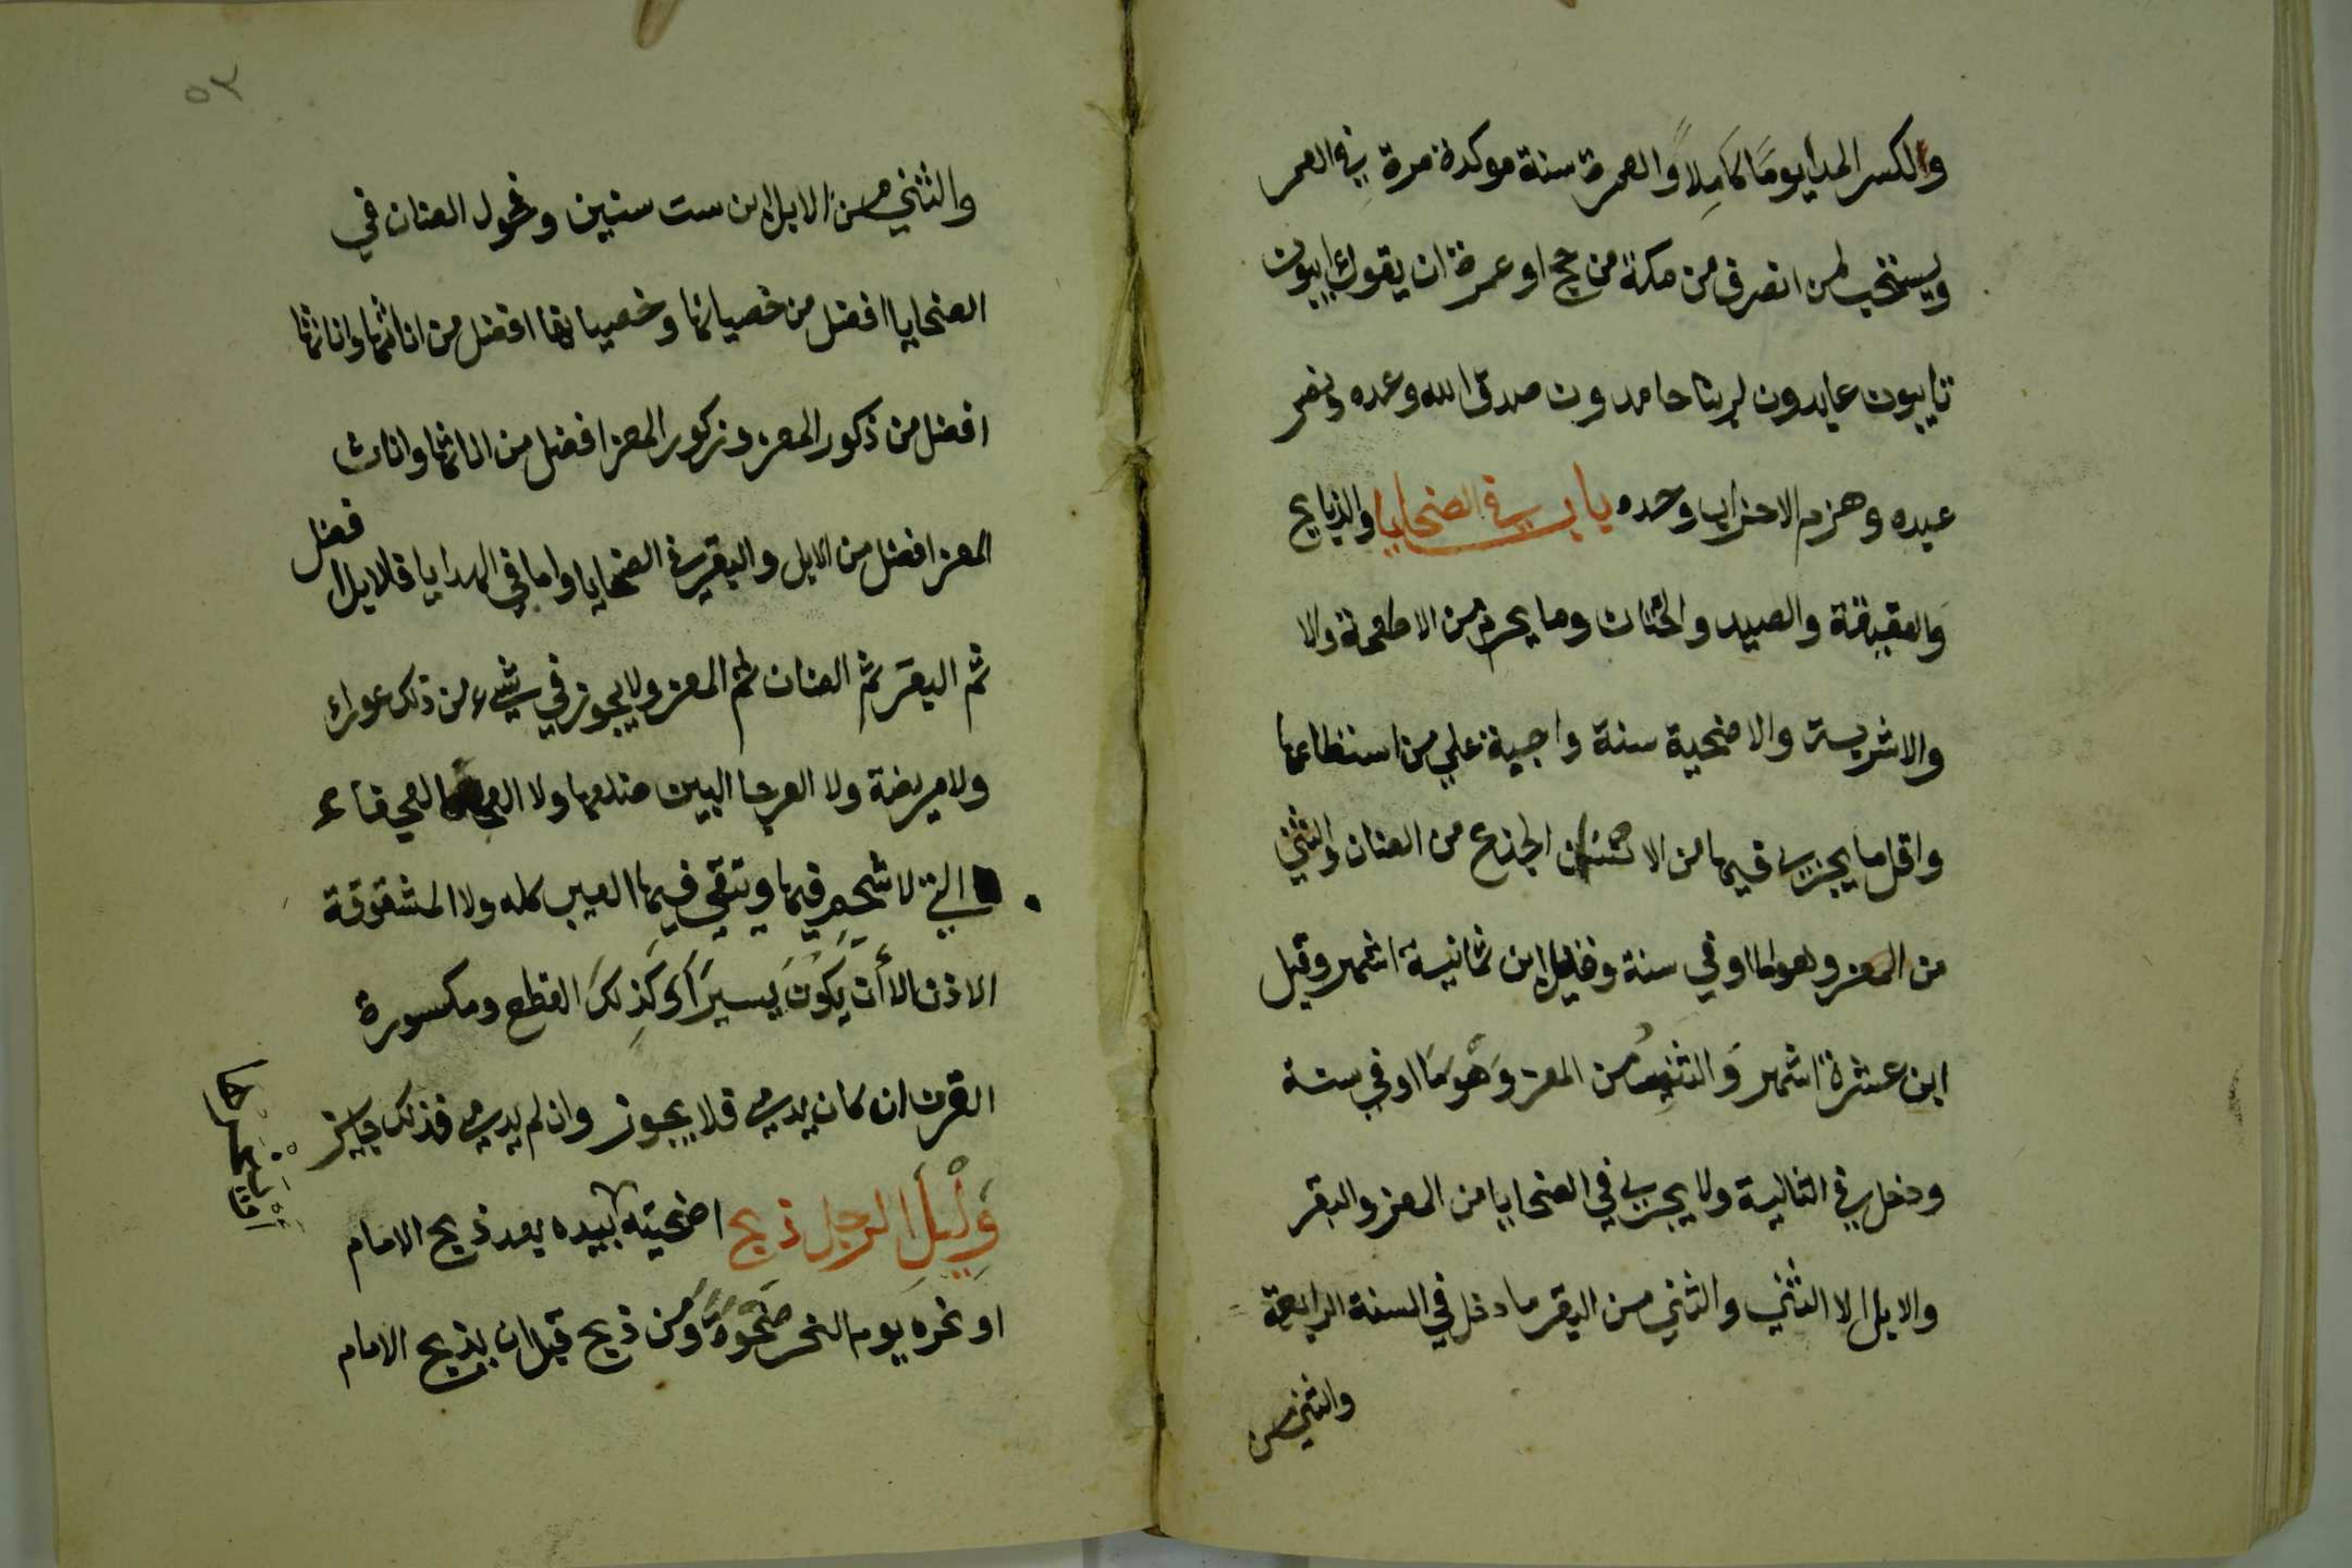 ولكسر المد يوما كَامِلاً والعمرة سنة موكدة مرة في العمر
ويستحب لمن انصرف من مكة من حج او عمرة ان يقول ايبون
تايبون عابدون لربنا حامدون صدق الله وعده ونصر
عبده وهزم الاحزاب وحده باب في الضحايا والذبايح
والعقيقة والصيد والختان وما يحرم من الاطعمة والا
والاشربة والاضحية سنة واجبة علي من استطاعها
واقل ما يجزي فيها من الاسنان الجذع من الضان والثني
من المعز وهو ما اوفي سنة وقيل ابن ثمانية اشهر وقيل
ابن عشرة اشهر وَالثني من المعز وَهُوَ مَا اوفي سنة
ودخل في الثانية ولا يجزي في الضحايا من المعز والبقر
والابل الا الثني والثني من البقر ما دخل في السنة الرابعة
والثني من
٥٣
والثني من الابل ابن ست سنين وفحول الضان في
الضحايا افضل من خصيانها وخصيانها افضل من اناثها واناثها
افضل من ذكور المعز وذكور المعز افضل من اناثها واناث
المعز افضل من الابل والبقر في الضحايا واما في الهدايا فالابل افضل
ثم البقر ثم الضان ثم المعز ولا يجوز في شيء من ذلك عوراء
ولا مريضة ولا العرجا البين ضلعها ولا العجفاء
التي لا شحم فيها ويتقي فيها العيب كله ولا المشقوقة
الاذن الا أَنْ يَكُونَ يَسيرَا وَكَذِلكَ القطع ومكسورة
القرن ان كان يدمي فلا يجوز وان لم يدمي فذلك جايز
وَلْيَلِ الرجل ذبح اضحيته بيده بعد ذبح الامام
او نحره يوم النحر ضَحْوَةً وَمَن ذبح قبل ان يذبح الامام